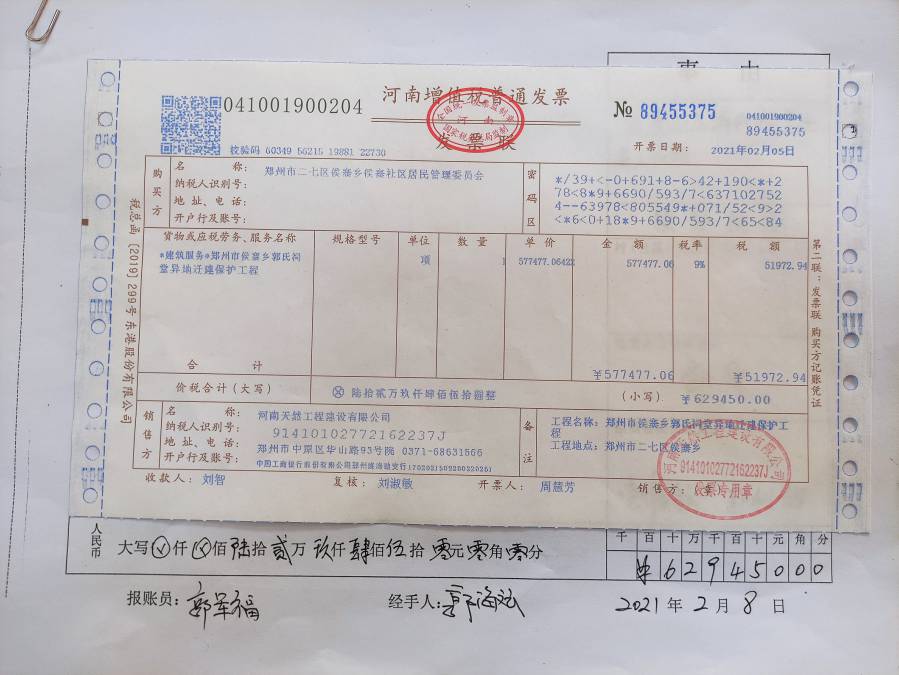 河南增值税普通发票
发票联
041001900204
校验码 60349 56215 19881 22730
№ 89455375
041001900204
89455375
开票日期： 2021年02月05日
税总函[2019]299号 东港股份有限公司
购买方
名 称： 郑州市二七区侯寨乡侯寨社区居民管理委员会
纳税人识别号：
地 址、电 话：
开户行及账号：
密码区
*/39+<-0+691+8-6>42+190<*+2
78<8*9+6690/593/7<637102752
4--63978<805549*+071/52<9>2
<*6<0+18*9+6690/593/7<65<84
货物或应税劳务、服务名称 规格型号 单位 数 量 单 价 金 额 税率 税 额
*建筑服务*郑州市侯寨乡郭氏祠 项 1 577477.06422 577477.06 9% 51972.94
堂异地迁建保护工程
合 计 ￥577477.06 ￥51972.94
价税合计（大写） ⊗ 陆拾贰万玖仟肆佰伍拾圆整 （小写） ￥629450.00
销售方
名 称： 河南天懿工程建设有限公司
纳税人识别号： 91410102772162237J
地 址、电 话： 郑州市中原区华山路93号院 0371-68631566
开户行及账号：
备注
工程名称：郑州市侯寨乡郭氏祠堂异地迁建保护工
程
工程地点：郑州市二七区侯寨乡
收款人： 刘智 复核： 刘淑敏 开票人： 周慧芳 销售方：（章）
91410102772162237J
发票专用章
第二联：发票联 购买方记账凭证
人民币
大写 仟 佰陆拾贰万玖仟肆佰伍拾零元零角零分
千 百 十 万 千 百 十 元 角 分
￥62945000
报账员：郭军福 经手人：郭海斌 2021年2月8日